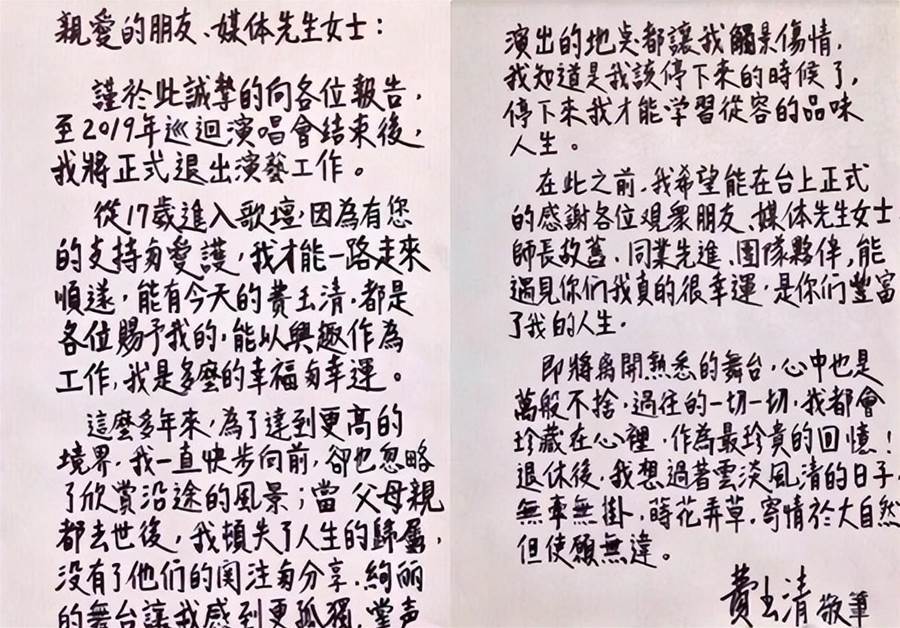 親愛的朋友、媒体先生女士：
謹於此誠摯的向各位報告，
至2019年巡迴演唱會結束後，
我將正式退出演藝工作。
從17歲進入歌壇，因為有您
的支持与愛護，我才能一路走來
順遂，能有今天的費玉清，都是
各位賜予我的，能以興趣作為
工作，我是多麼的幸福与幸運。
這麼多年來，為了達到更高的
境界，我一直快步向前，卻也忽略
了欣賞沿途的風景；當 父母親
都去世後，我頓失了人生的歸屬，
没有了他們的関注与分享，絢丽
的舞台讓我感到更孤獨，掌声
演出的地点都讓我觸景傷情，
我知道是我該停下來的時候了，
停下來我才能学習從容的品味
人生。
在此之前，我希望能在台上正式
的感謝各位观衆朋友、媒体先生女士、
師長故舊、同業先進、團隊夥伴，能
遇見你們我真的很幸運，是你們豐富
了我的人生，
即將离開熟悉的舞台，心中也是
萬般不捨，過往的一切一切，我都會
珍藏在心裡，作為最珍貴的回憶！
退休後，我想過著雲淡風清的日子，
無牽無掛，蒔花弄草，寄情於大自然
但使願無違。
費玉清 敬筆